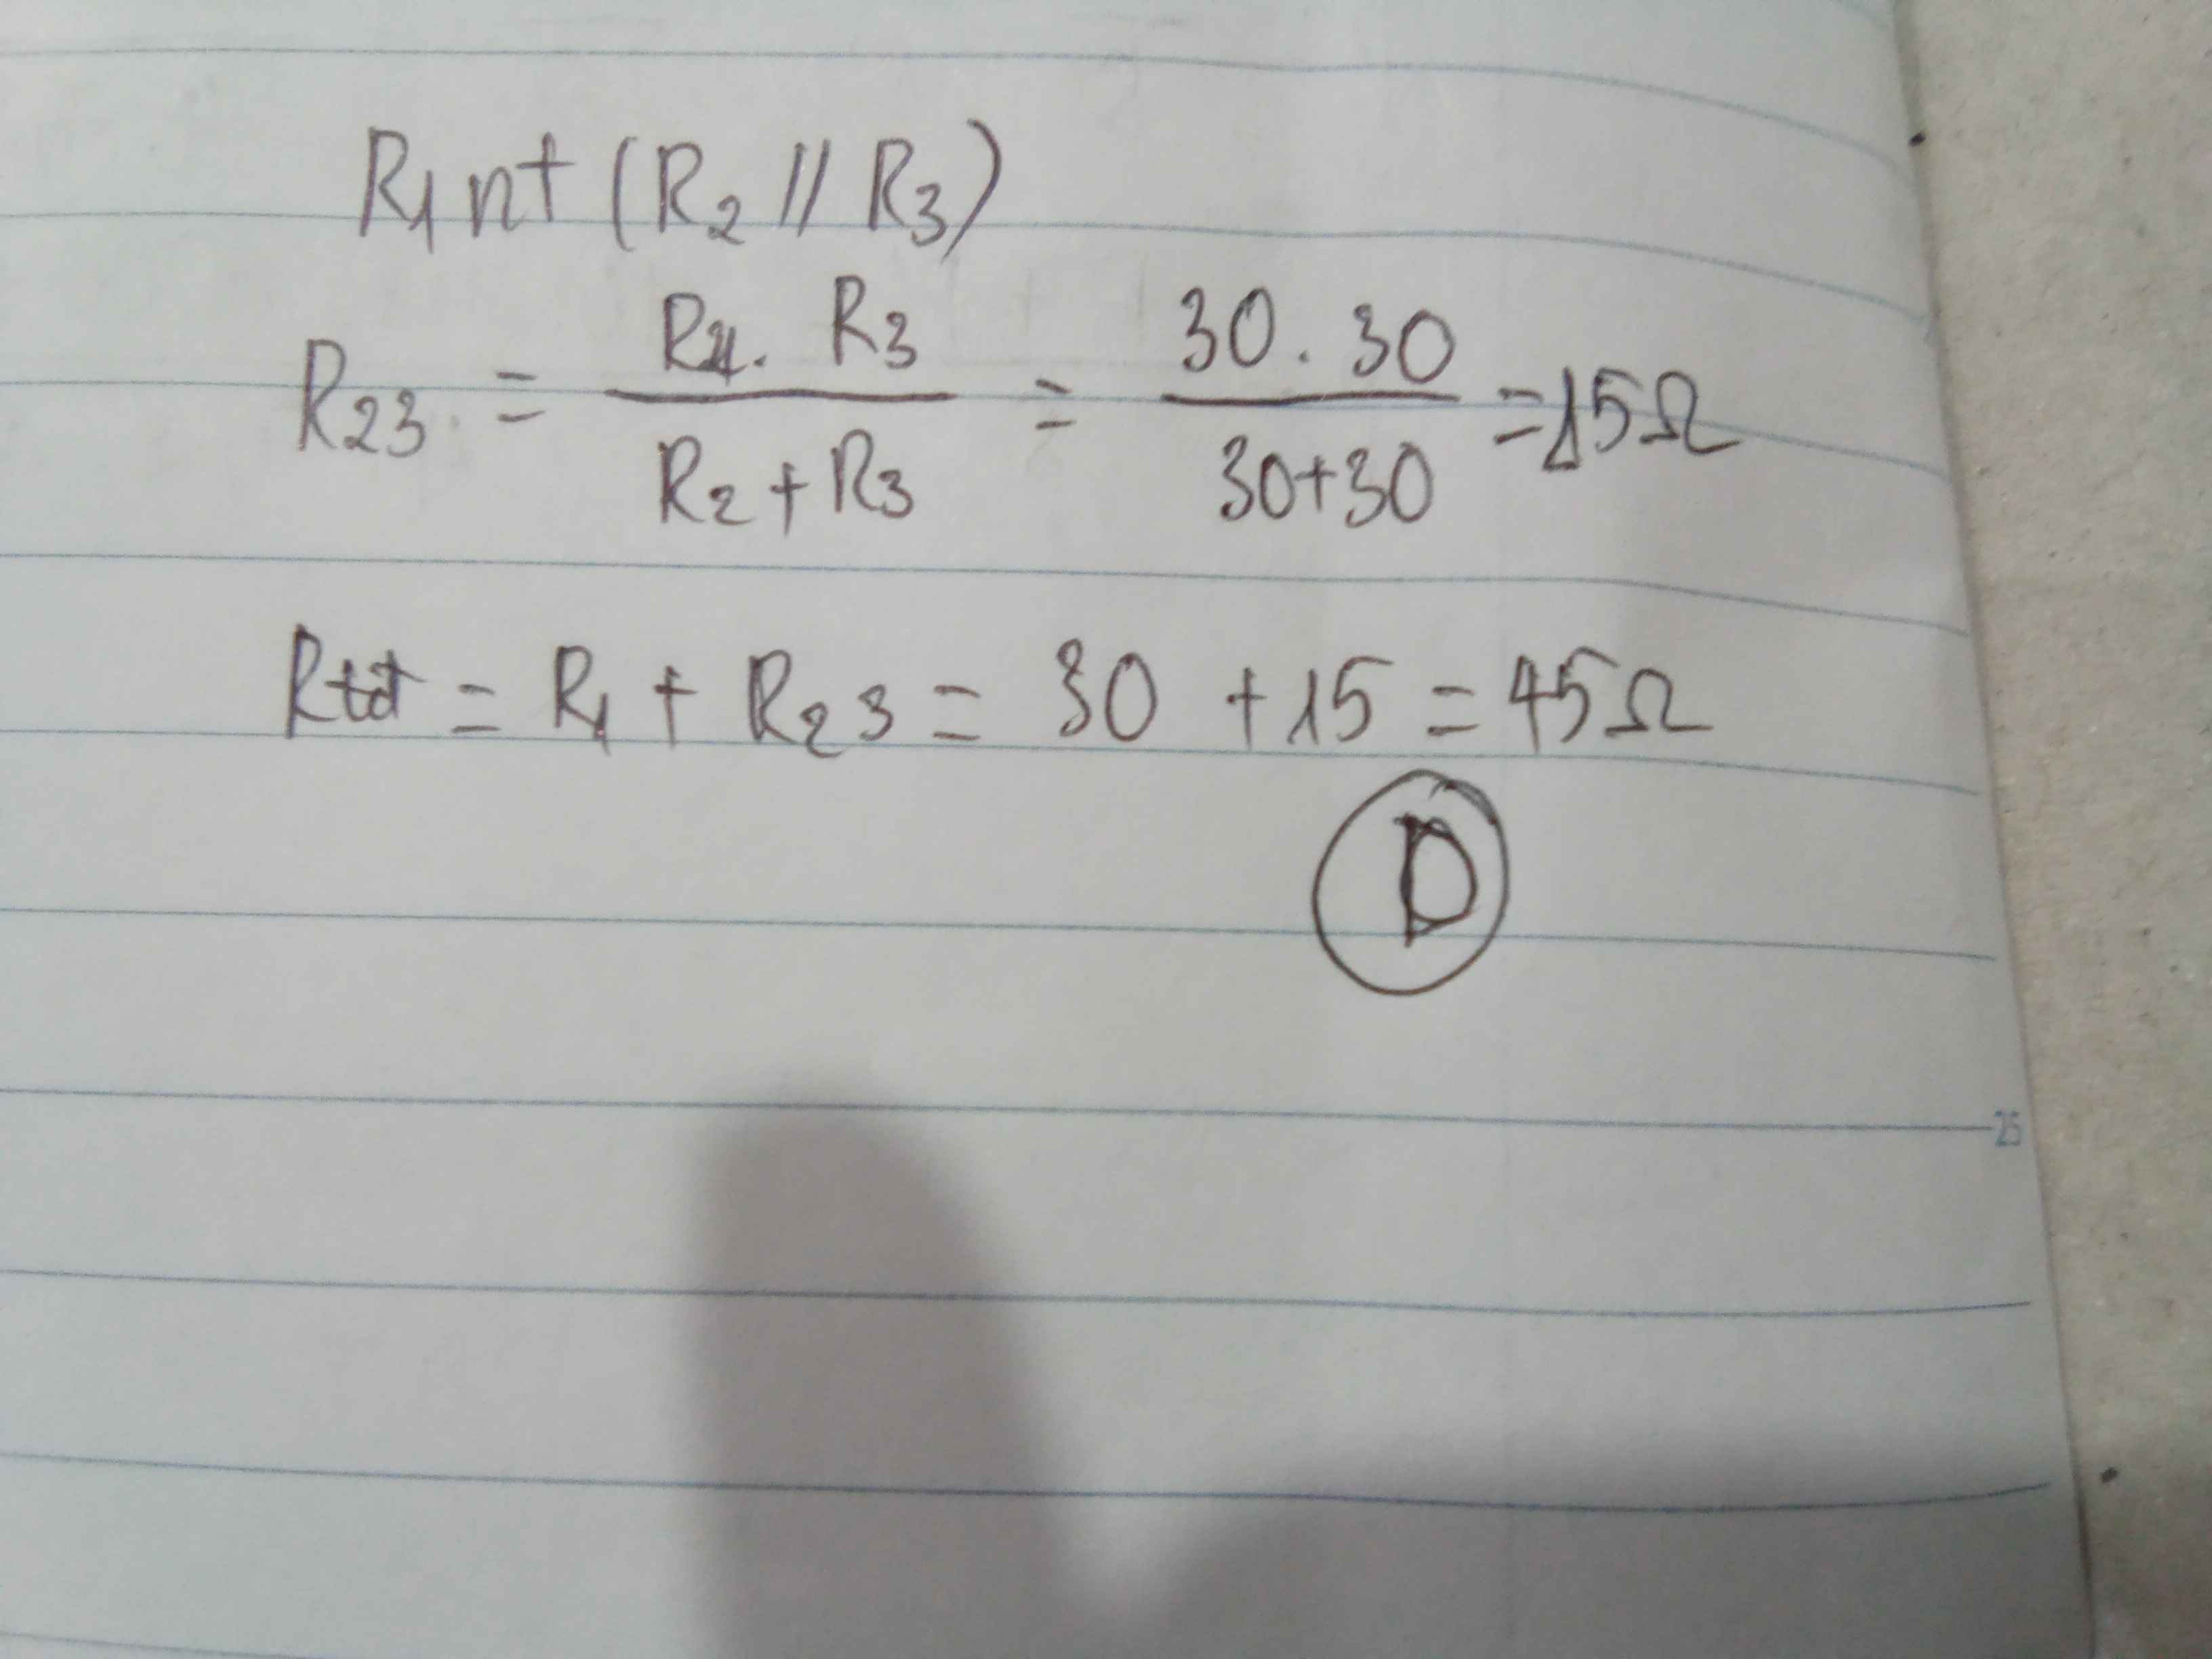 R1 nt (R2 // R3)
R23 = R2. R3 / R2 + R3 = 30 . 30 / 30+30 = 15Ω
Rtđ = R1 + R23 = 30 + 15 = 45Ω
D
25